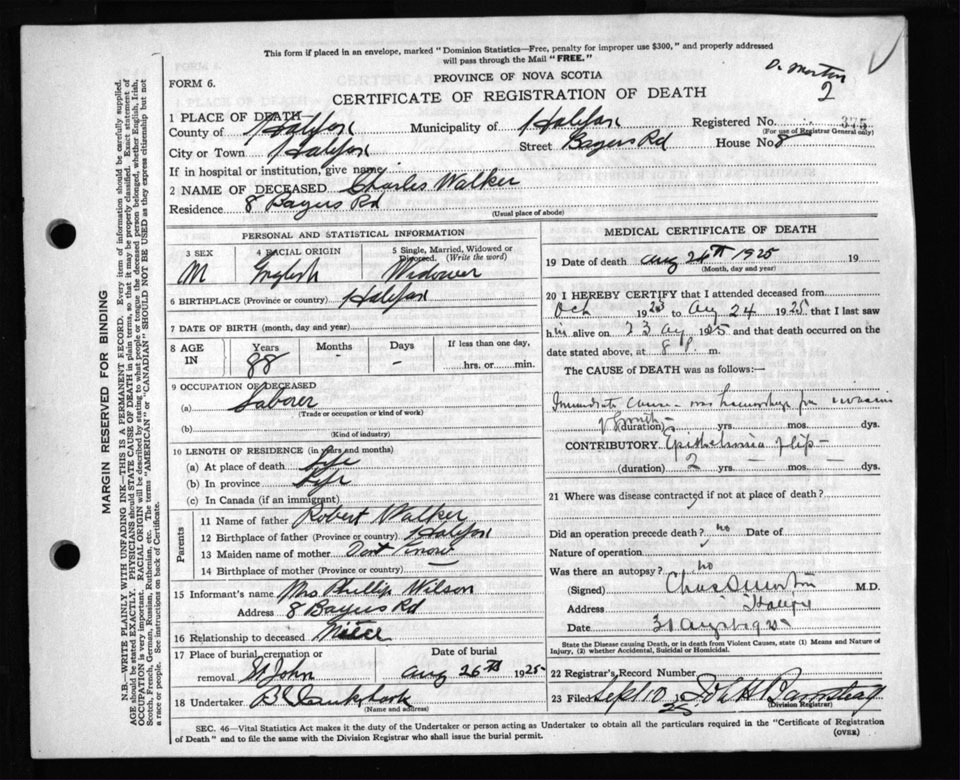 This form if placed in an envelope, marked "Dominion Statistics—Free, penalty for improper use $300," and properly addressed
will pass through the Mail "FREE."
D. Morton
2
FORM 6.
PROVINCE OF NOVA SCOTIA
CERTIFICATE OF REGISTRATION OF DEATH
1 PLACE OF DEATH—
County of Halifax Municipality of Halifax Registered No. 375
(For use of Registrar General only)
City or Town Halifax Street Bayers Rd House No. 8
If in hospital or institution, give name
2 NAME OF DECEASED Charles Walker
Residence 8 Bayers Rd
(Usual place of abode)
PERSONAL AND STATISTICAL INFORMATION
3 SEX 4 RACIAL ORIGIN 5 Single, Married, Widowed or Divorced. (Write the word)
M English Widower
6 BIRTHPLACE (Province or country) Halifax
7 DATE OF BIRTH (month, day and year)
8 AGE IN Years Months Days If less than one day,
88 - - hrs. or min.
9 OCCUPATION OF DECEASED
(a) Laborer
(Trade or occupation or kind of work)
(b)
(Kind of industry)
10 LENGTH OF RESIDENCE (in years and months)
(a) At place of death Life
(b) In province Life
(c) In Canada (if an immigrant)
Parents
11 Name of father Robert Walker
12 Birthplace of father (Province or country) Halifax
13 Maiden name of mother Dont know
14 Birthplace of mother (Province or country) —
15 Informant's name Mrs Phillip Wilson
Address 8 Bayers Rd
16 Relationship to deceased Niece
17 Place of burial, cremation or removal Date of burial
St John Aug 26th 1925
18 Undertaker
(Name and address)
MEDICAL CERTIFICATE OF DEATH
19 Date of death Aug 24th 1925 19
(Month, day and year)
20 I HEREBY CERTIFY that I attended deceased from
Oct 1923 to Aug 24 1925 that I last saw
him alive on 23 Aug 1925 and that death occurred on
date stated above, at 8 P. m.
The CAUSE of DEATH was as follows:—
Immediate cause was hemorrhage from
(duration) yrs. mos. dys.
CONTRIBUTORY Epithelioma of lip —
(duration) 2 yrs. mos. dys.
21 Where was disease contracted if not at place of death?
Did an operation precede death? no Date of
Nature of operation
Was there an autopsy? no
(Signed) Chas D Morton M.D.
Address Halifax
Date 31 August 1925
State the Disease causing Death, or in death from Violent Causes, state (1) Means and Nature of
Injury, (2) whether Accidental, Suicidal or Homicidal.
22 Registrar's Record Number
23 Filed Sept 10 1925
(Division Registrar)
SEC. 46—Vital Statistics Act makes it the duty of the Undertaker or person acting as Undertaker to obtain all the particulars required in the "Certificate of Registration
of Death" and to file the same with the Division Registrar who shall issue the burial permit.
(OVER)
MARGIN RESERVED FOR BINDING
N.B.—WRITE PLAINLY WITH UNFADING INK—THIS IS A PERMANENT RECORD. Every item of information should be carefully supplied.
AGE should be stated EXACTLY. PHYSICIANS should STATE CAUSE OF DEATH in plain terms, so that it may be properly classified. Exact statement of
OCCUPATION is very important. RACIAL ORIGIN will be described by stating to what people or tongue the deceased person belonged, whether English, Irish,
Scotch, French, German, Russian, Ruthenian, etc. The terms "AMERICAN" or "CANADIAN" SHOULD NOT BE USED as they express citizenship but not
a race or people. See instructions on back of Certificate.